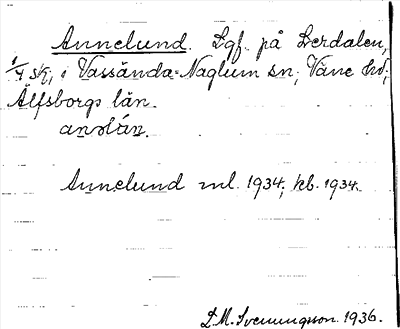 Annelund. Lgf. på Lerdalen,
1/4 sk; i Vassända-Naglum sn; Väne hd;
Älfsborgs län.
Annelund ml. 1934; kb. 1934.
D. M. Svenungsson. 1936.